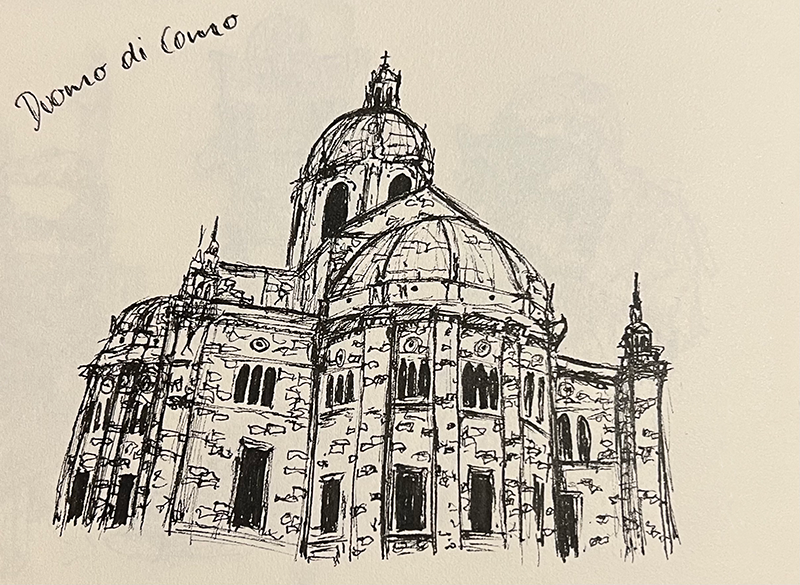 Duomo di Como